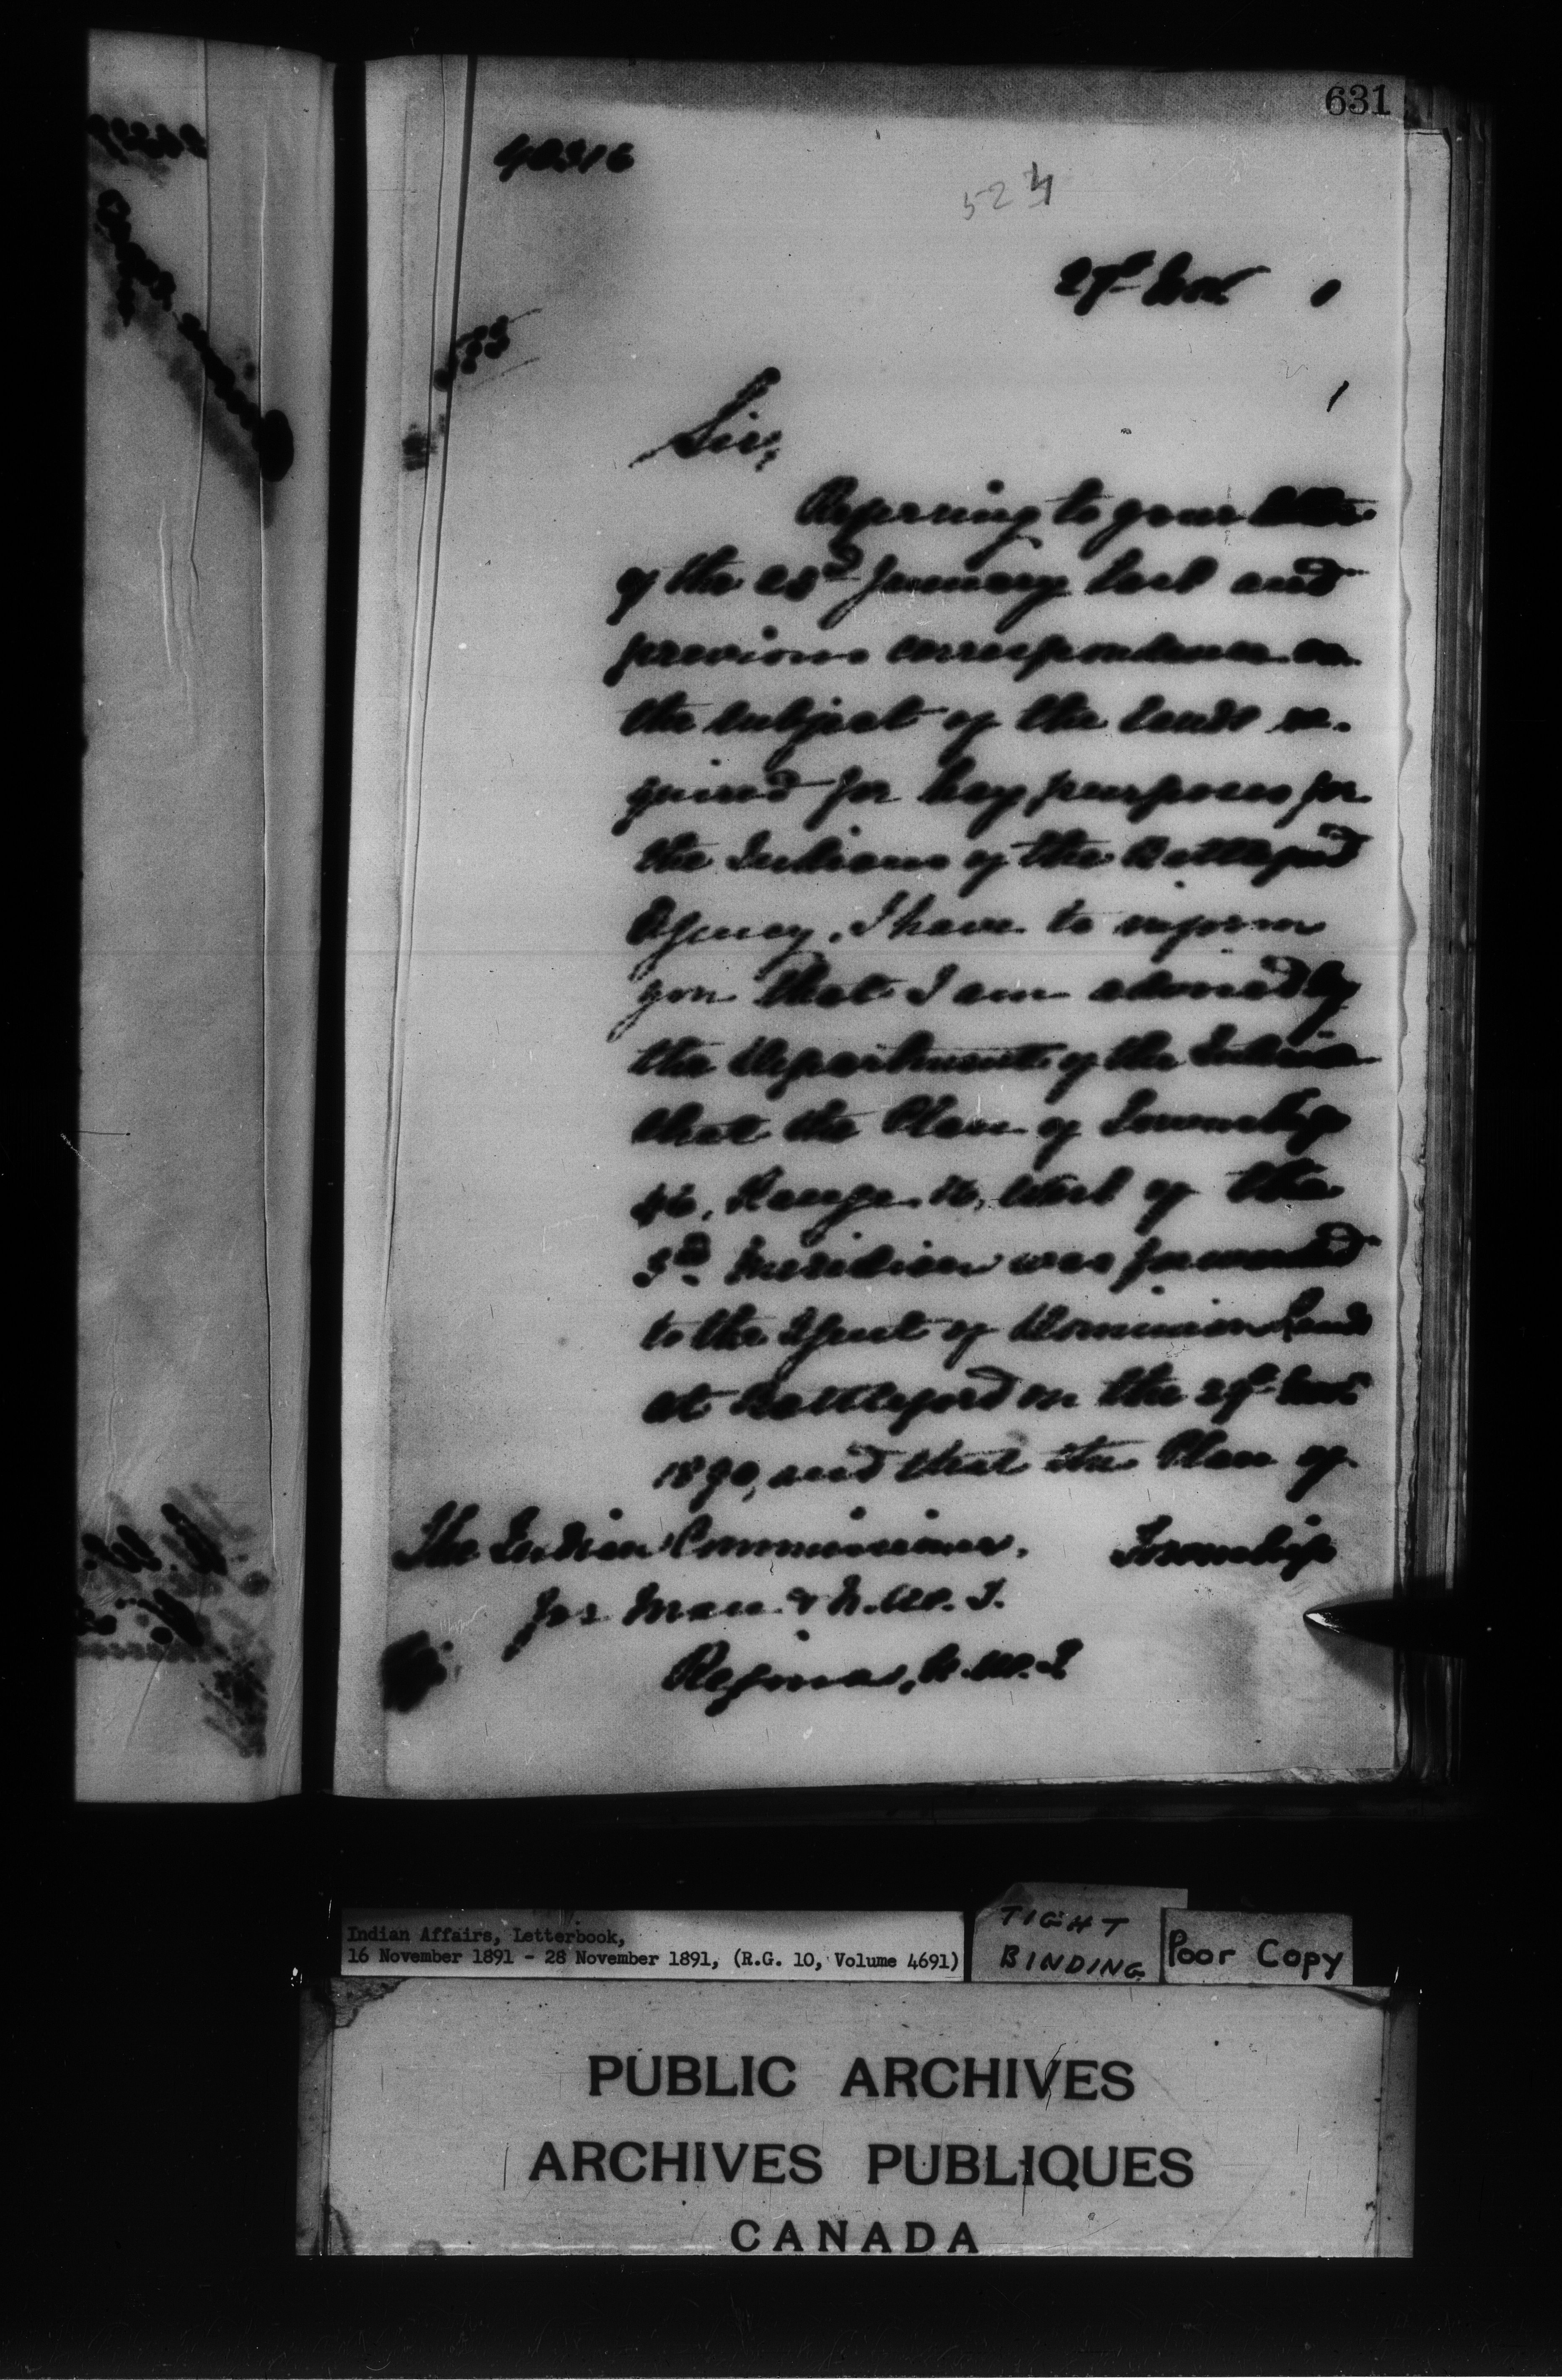 631
40316
524
27th Nov 1
Sir,
Referring to your letter
of the 23rd January last and
previous correspondence on
the subject of the lands re-
quired for hay purposes for
the Indians of the Battleford
Agency, I have to inform
you that I am advised by
the Department of the Interior
that the Plan of Township
46, Range 16, West of the
3rd Meridian was forwarded
to the Agent of Dominion Lands
at Battleford on the 29th
1890, and that the Plan of
The Indian Commissioner, Township
for Man. & N.W.T.
Regina, N.W.T.
Indian Affairs, Letterbook,
16 November 1891 - 28 November 1891, (R.G. 10, Volume 4691)
TIGHT
BINDING
Poor Copy
PUBLIC ARCHIVES
ARCHIVES PUBLIQUES
CANADA